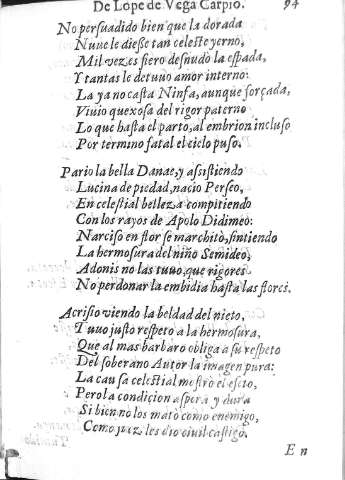 De Lope de Vega Carpio. 94
No persuadido bien que la dorada
Nuue le dieße tan celeste yerno,
Mil vezes fiero desnudò la espada,
Y tantas le detuuo amor interno:
La ya no casta Ninfa, aunque forçada,
Viuio quexosa del rigor paterno
Lo que hasta el parto, al embrion incluso
Por termino fatal el cielo puso.
Pario la bella Danae, y assistiendo
Lucina de piedad, nacio Perseo,
En celestial belleza compitiendo
Con los rayos de Apolo Didimeo:
Narciso en flor se marchitò, sintiendo
La hermosura del niño Semideo,
Adonis no las tuuo, que rigores
No perdonar la embidia hasta las flores.
Acrisio viendo la beldad del nieto,
Tuuo justo respeto a la hermosura,
Que al mas barbaro obliga a su respeto
Del soberano Autor la imagen pura:
La causa celestial mostrò el efeto,
Pero la condicion aspera y dura
Si bien no los matò como enemigo,
Como juez les dio ciuil castigo.
En